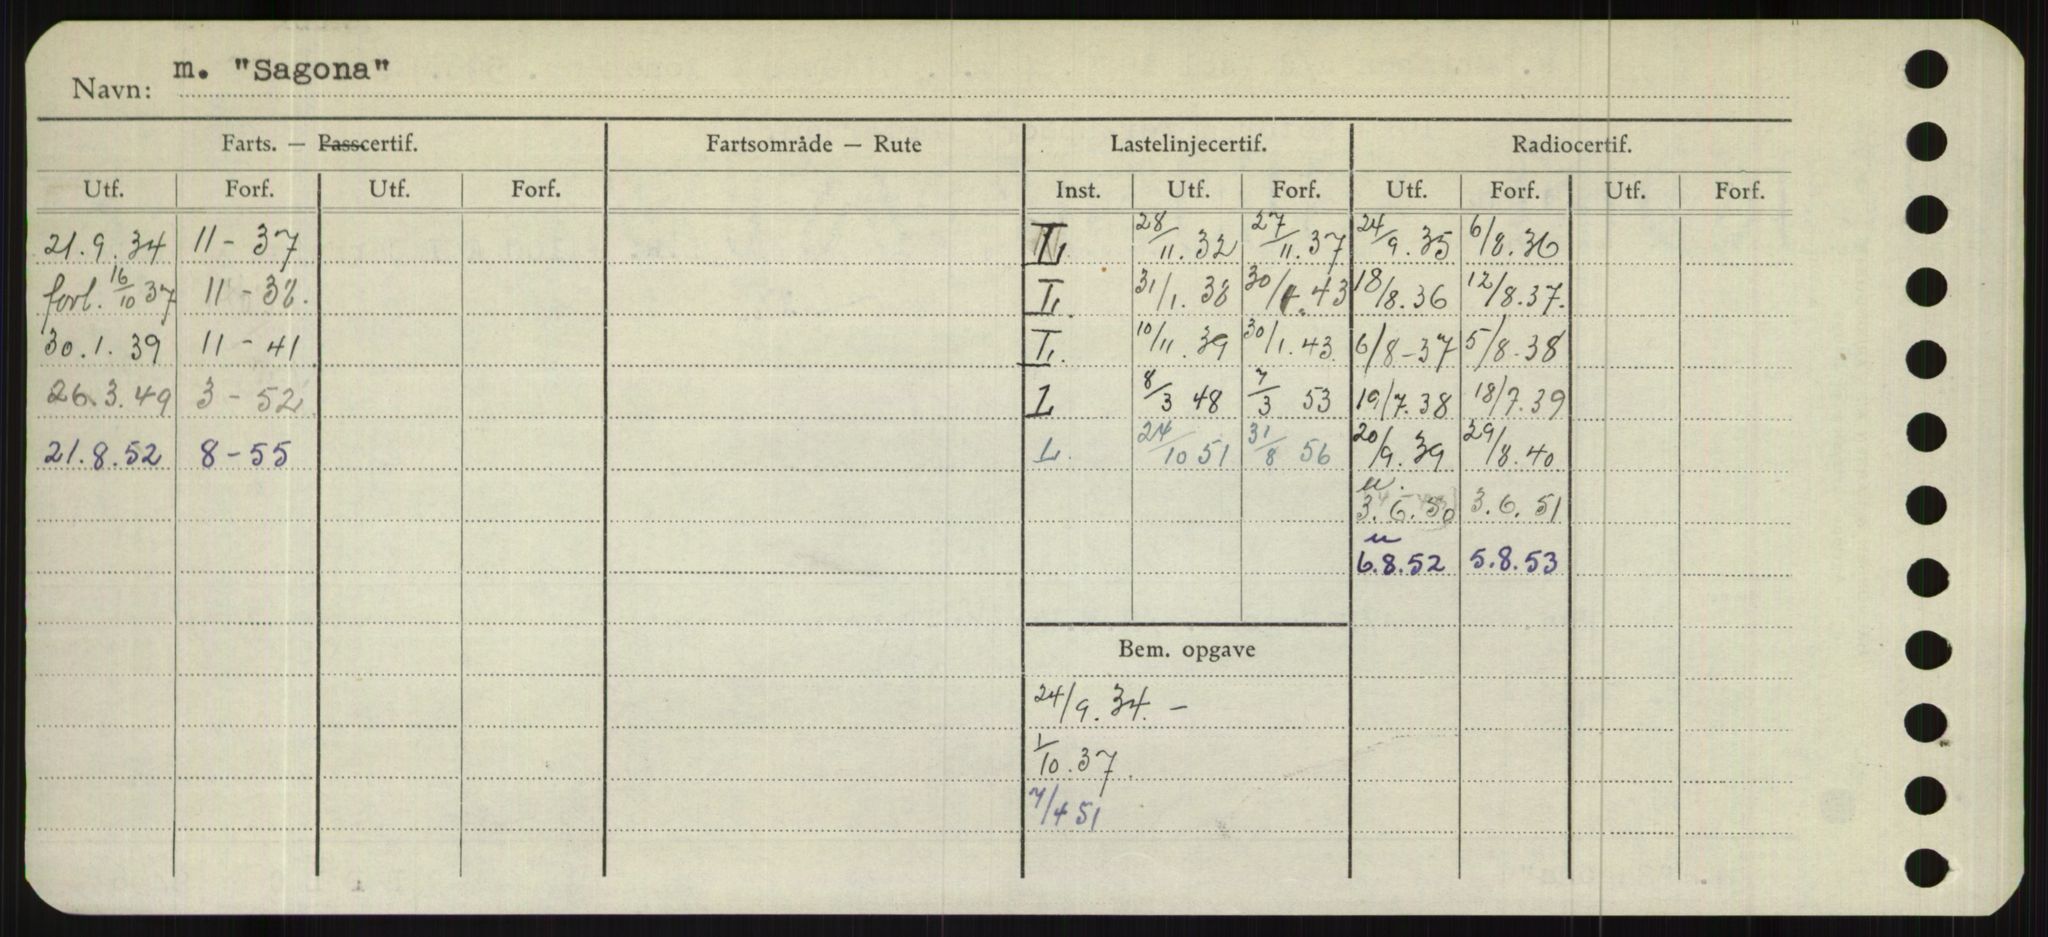 Navn: m. "Sagona"
Farts. — Passcertif. Fartsområde — Rute Lastelinjecertif. Radiocertif.
Utf. Forf. Utf. Forf. Inst. Utf. Forf. Utf. Forf. Utf. Forf.
21.9.34 11-37 28/11.32 27/11.37 24/9.35 6/8.36
forl. 16/10 37 11-38. L. 31/1.38 30/1.43 18/8.36 12/8.37.
30.1.39 11-41 L. 10/11.39 30/1.43. 6/8-37 5/8-38
26.3.49 3-52 L 8/3 48 7/3 53 19/7.38 18/7.39
21.8.52 8-55 L. 24/10 51 31/8 56 20/9.39 29/8.40
u.
3.6.50 3.6.51
u
6.8.52 5.8.53
Bem. opgave
24/9.34.-
1/10.37.
7/4 51